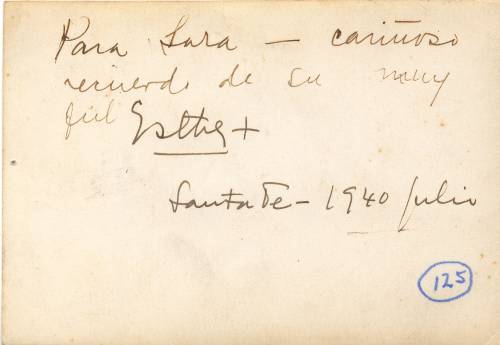 Para Sara — cariñoso
recuerdo de su muy
fiel Esther +
Santa Fe — 1940 julio
125